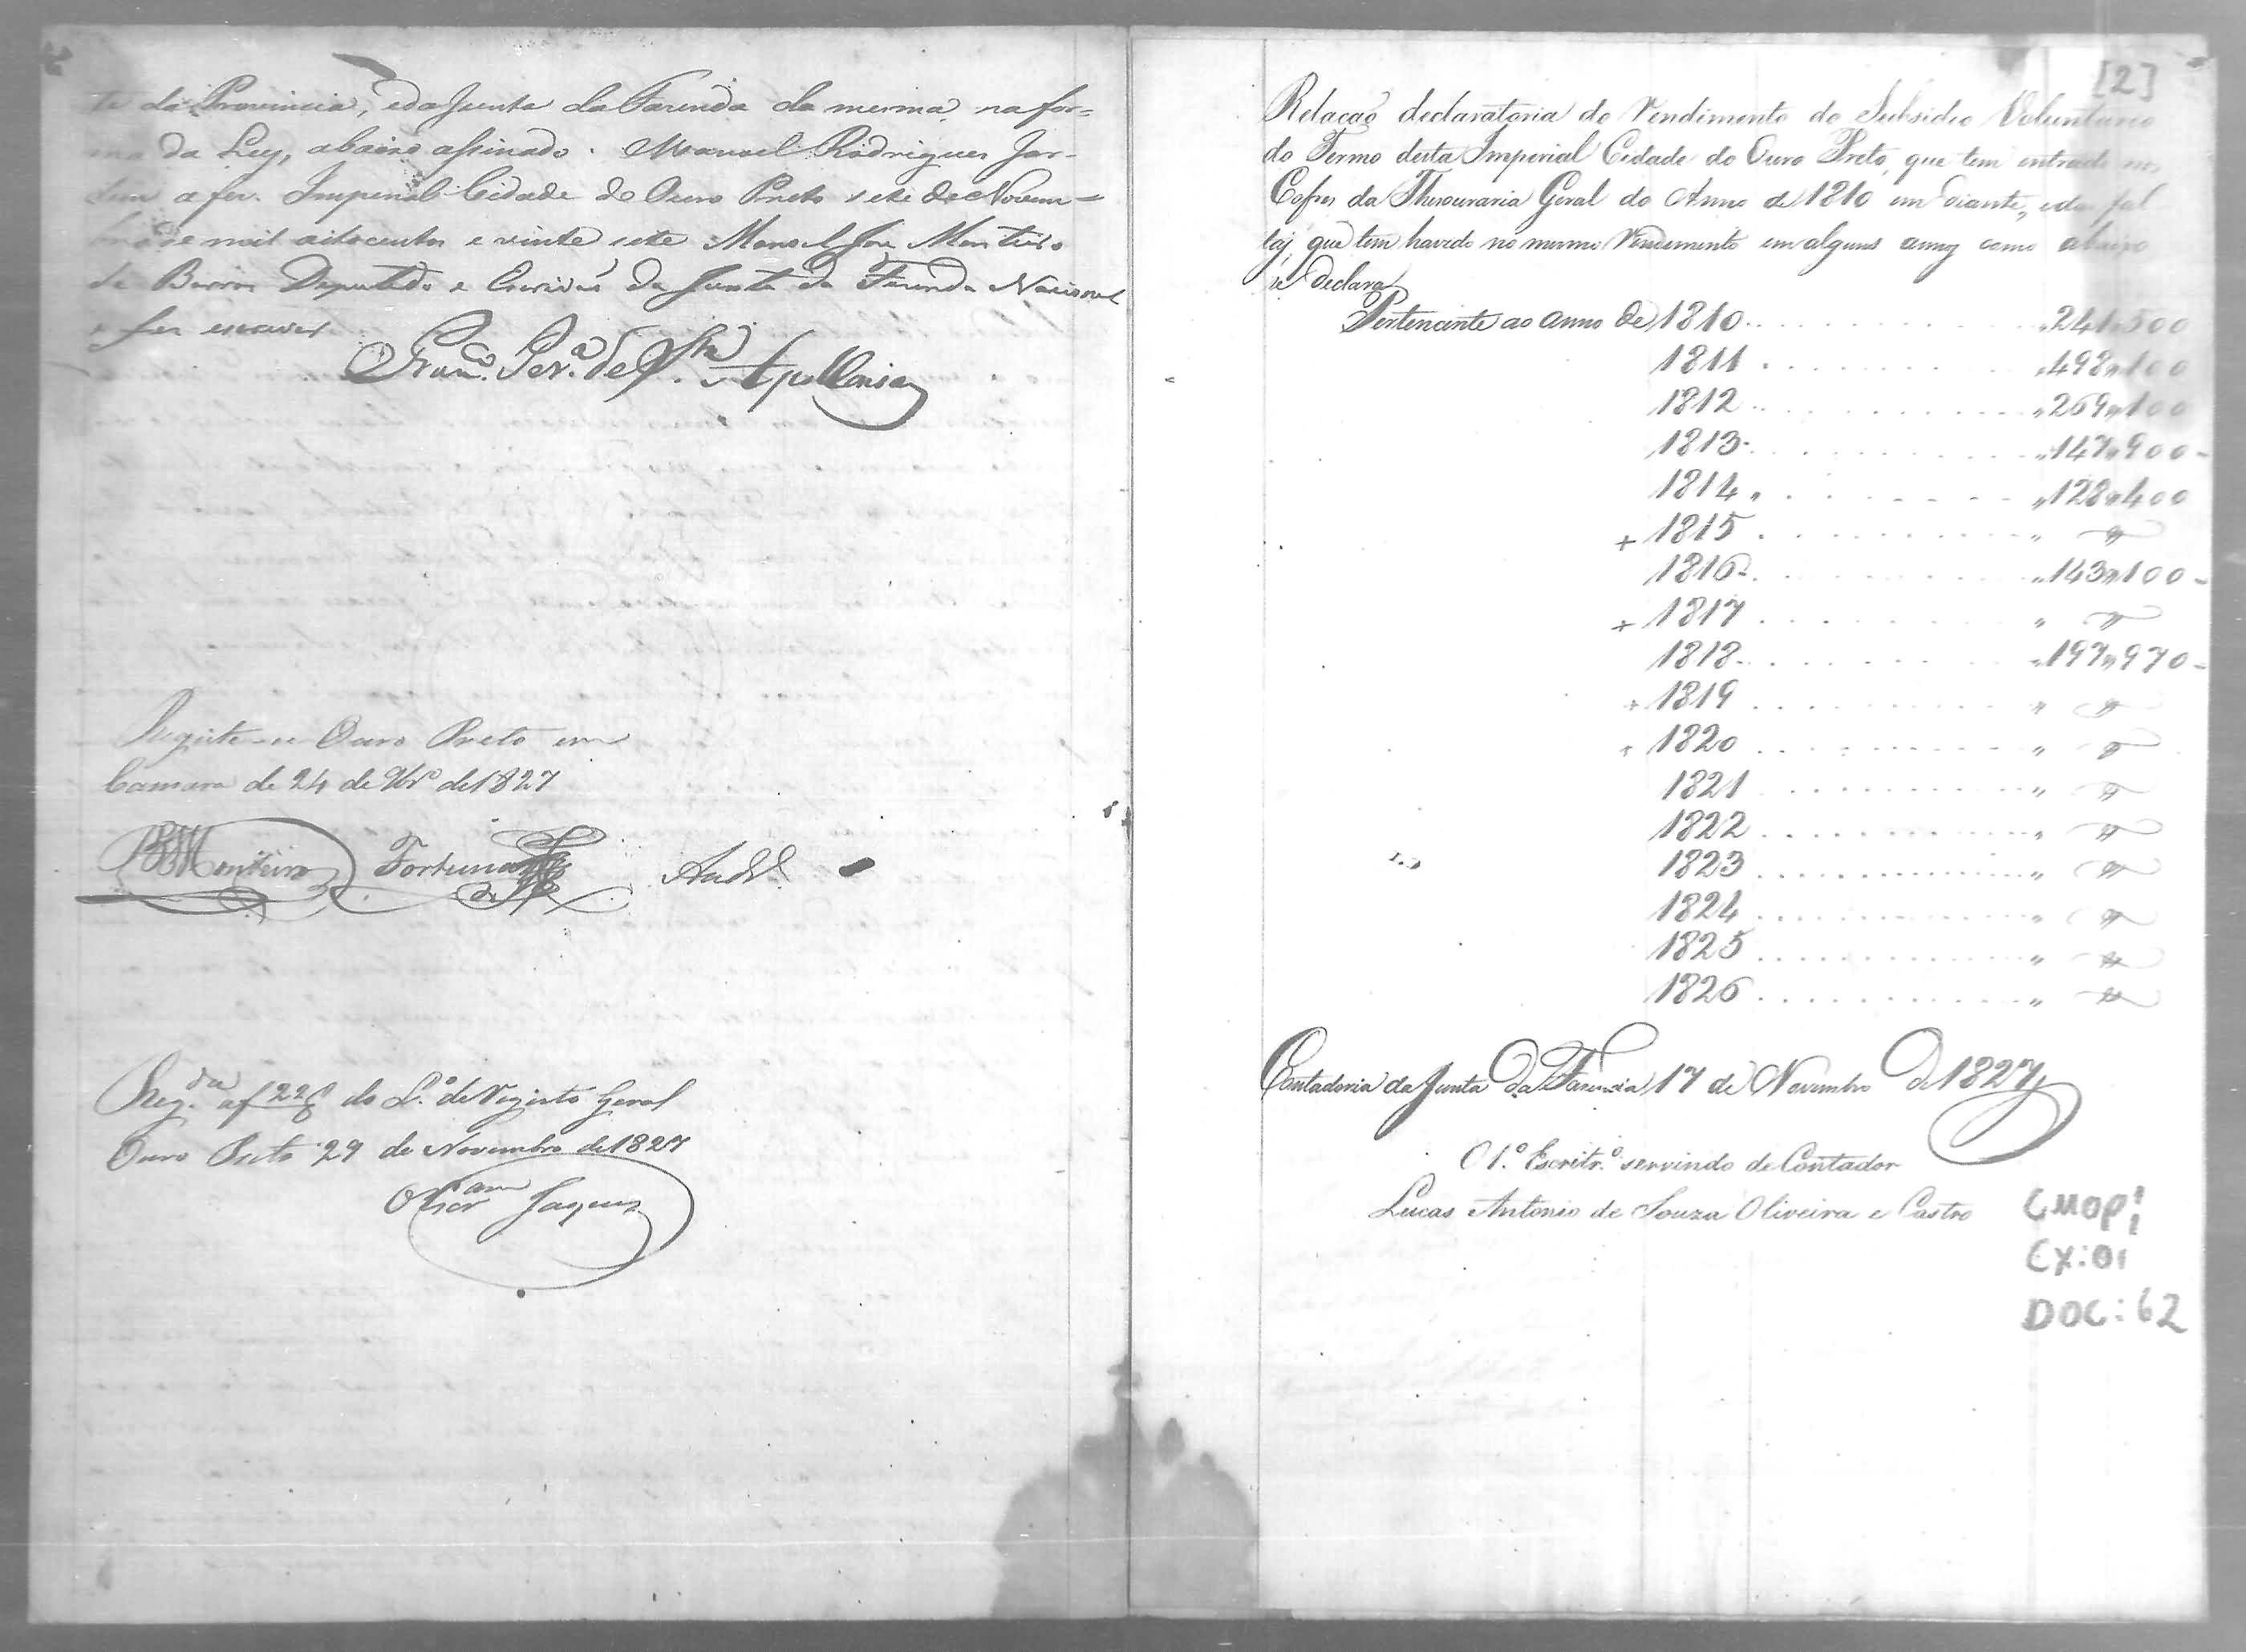 te da Provincia, e da Junta da Fazenda da mesma, na for=
ma da Ley, abaixo assinado. Manoel Rodrigues Jar-
dim a fez. Imperial Cidade do Ouro Preto sete de Novem-
bro de mil oitocentos e vinte sete Manoel José Monteiro
de Barros Deputado e Escrivaõ da Junta da Fazenda Nacional
a fez escrever
Fran.co Per.a de S.ta Apollonia
Registe-se Ouro Preto em
Camara de 24 de 9br.o de 1827
Monteiro Fortunato And.e
Reg.da a f 228 do L.o de Registo Geral
Ouro Preto 29 de Novembro de 1827
Jaques
[2]
Relaçaõ declaratoria do Rendimento do Subsidio Voluntario
do Termo desta Imperial Cidade do Ouro Preto, que tem entrado nos
Cofres da Thesouraria Geral do Anno de 1810 em diante, e das fal
tas, que tem havido no mesmo Rendimento em alguns annos como abaixo
se declara
Pertencente ao anno de 1810 . . . . . . . . . . "241"500
1811 . . . . . . . . . . "498"100
1812 . . . . . . . . . . "269"100
1813 . . . . . . . . . . "147"900-
1814 " . . . . . . . . . "128"400
+ 1815 . . . . . . . . . . " "
1816 . . . . . . . . . . "143"100-
+ 1817 . . . . . . . . . . " "
1818 . . . . . . . . . . "197"970-
+ 1819 . . . . . . . . . . " "
+ 1820 . . . . . . . . . . " "
1821 . . . . . . . . . . " "
1822 . . . . . . . . . . " "
1823 . . . . . . . . . . " "
1824 . . . . . . . . . . " "
1825 . . . . . . . . . . " "
1826 . . . . . . . . . . " "
Contadoria da Junta da Fazenda 17 de Novembro de 1827
O 1.o Escritr.o servindo de Contador
Lucas Antonio de Souza Oliveira e Castro
CMOP:
CX:01
DOC:62